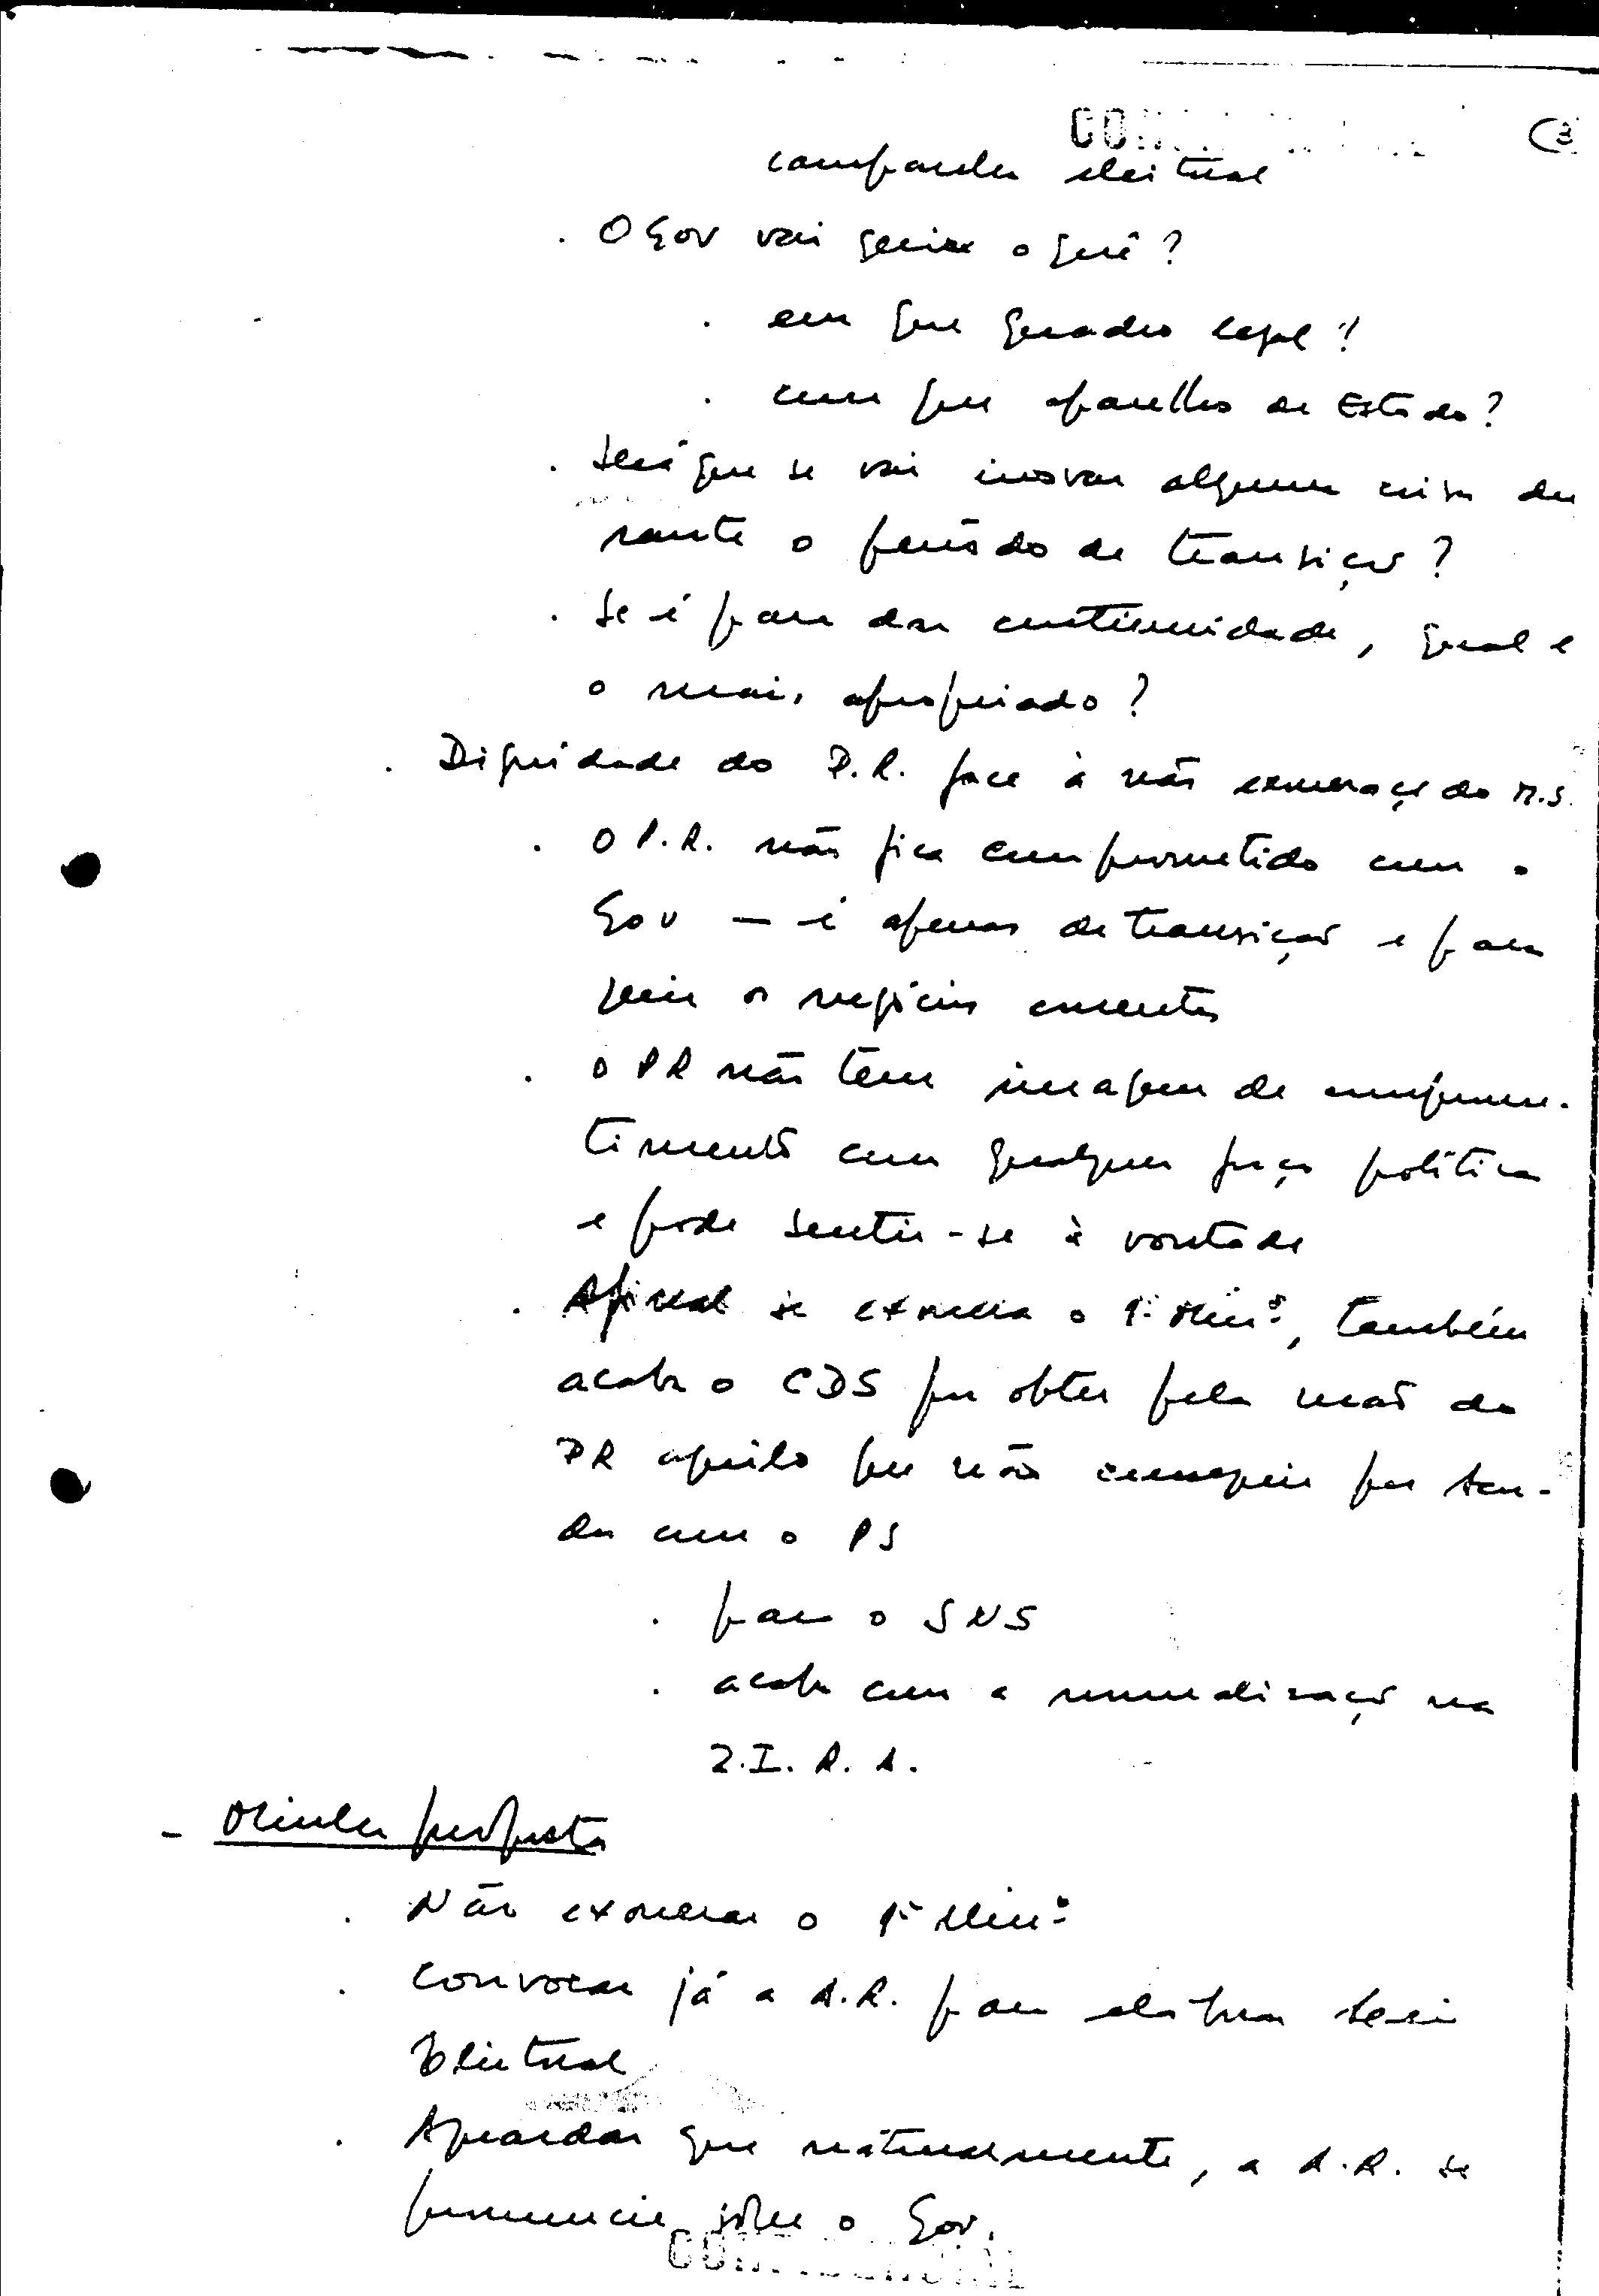 3
campanha eleitoral
. O Gov vai gerir o quê?
. em que quadro legal?
. com que aparelho de Estado?
. Será que se vai inovar alguma coisa du
rante o período de transição?
. Se é para dar continuidade, qual é
o mais apropriado?
. Dignidade do P.R. face à não exoneração do M.S.
. O P.R. não fica comprometido com o
Gov — é apenas de transição e para
gerir os negócios correntes
. O PR não tem imagem de comprome-
timento com qualquer força política
e pode sentir-se à vontade
. Afinal se exonera o 1º Minº, também
acaba o CDS por obter pela mão do
PR aquilo que não conseguiu por ban-
da com o PS
. para o SNS
. acaba com a normalização na
Z.I.R.A.
- Minha proposta
. Não exonerar o 1º Minº
. Convocar já a A.R. para elaborar Lei
Eleitoral
. Aguardar que naturalmente, a A.R. se
pronuncie sobre o Gov.